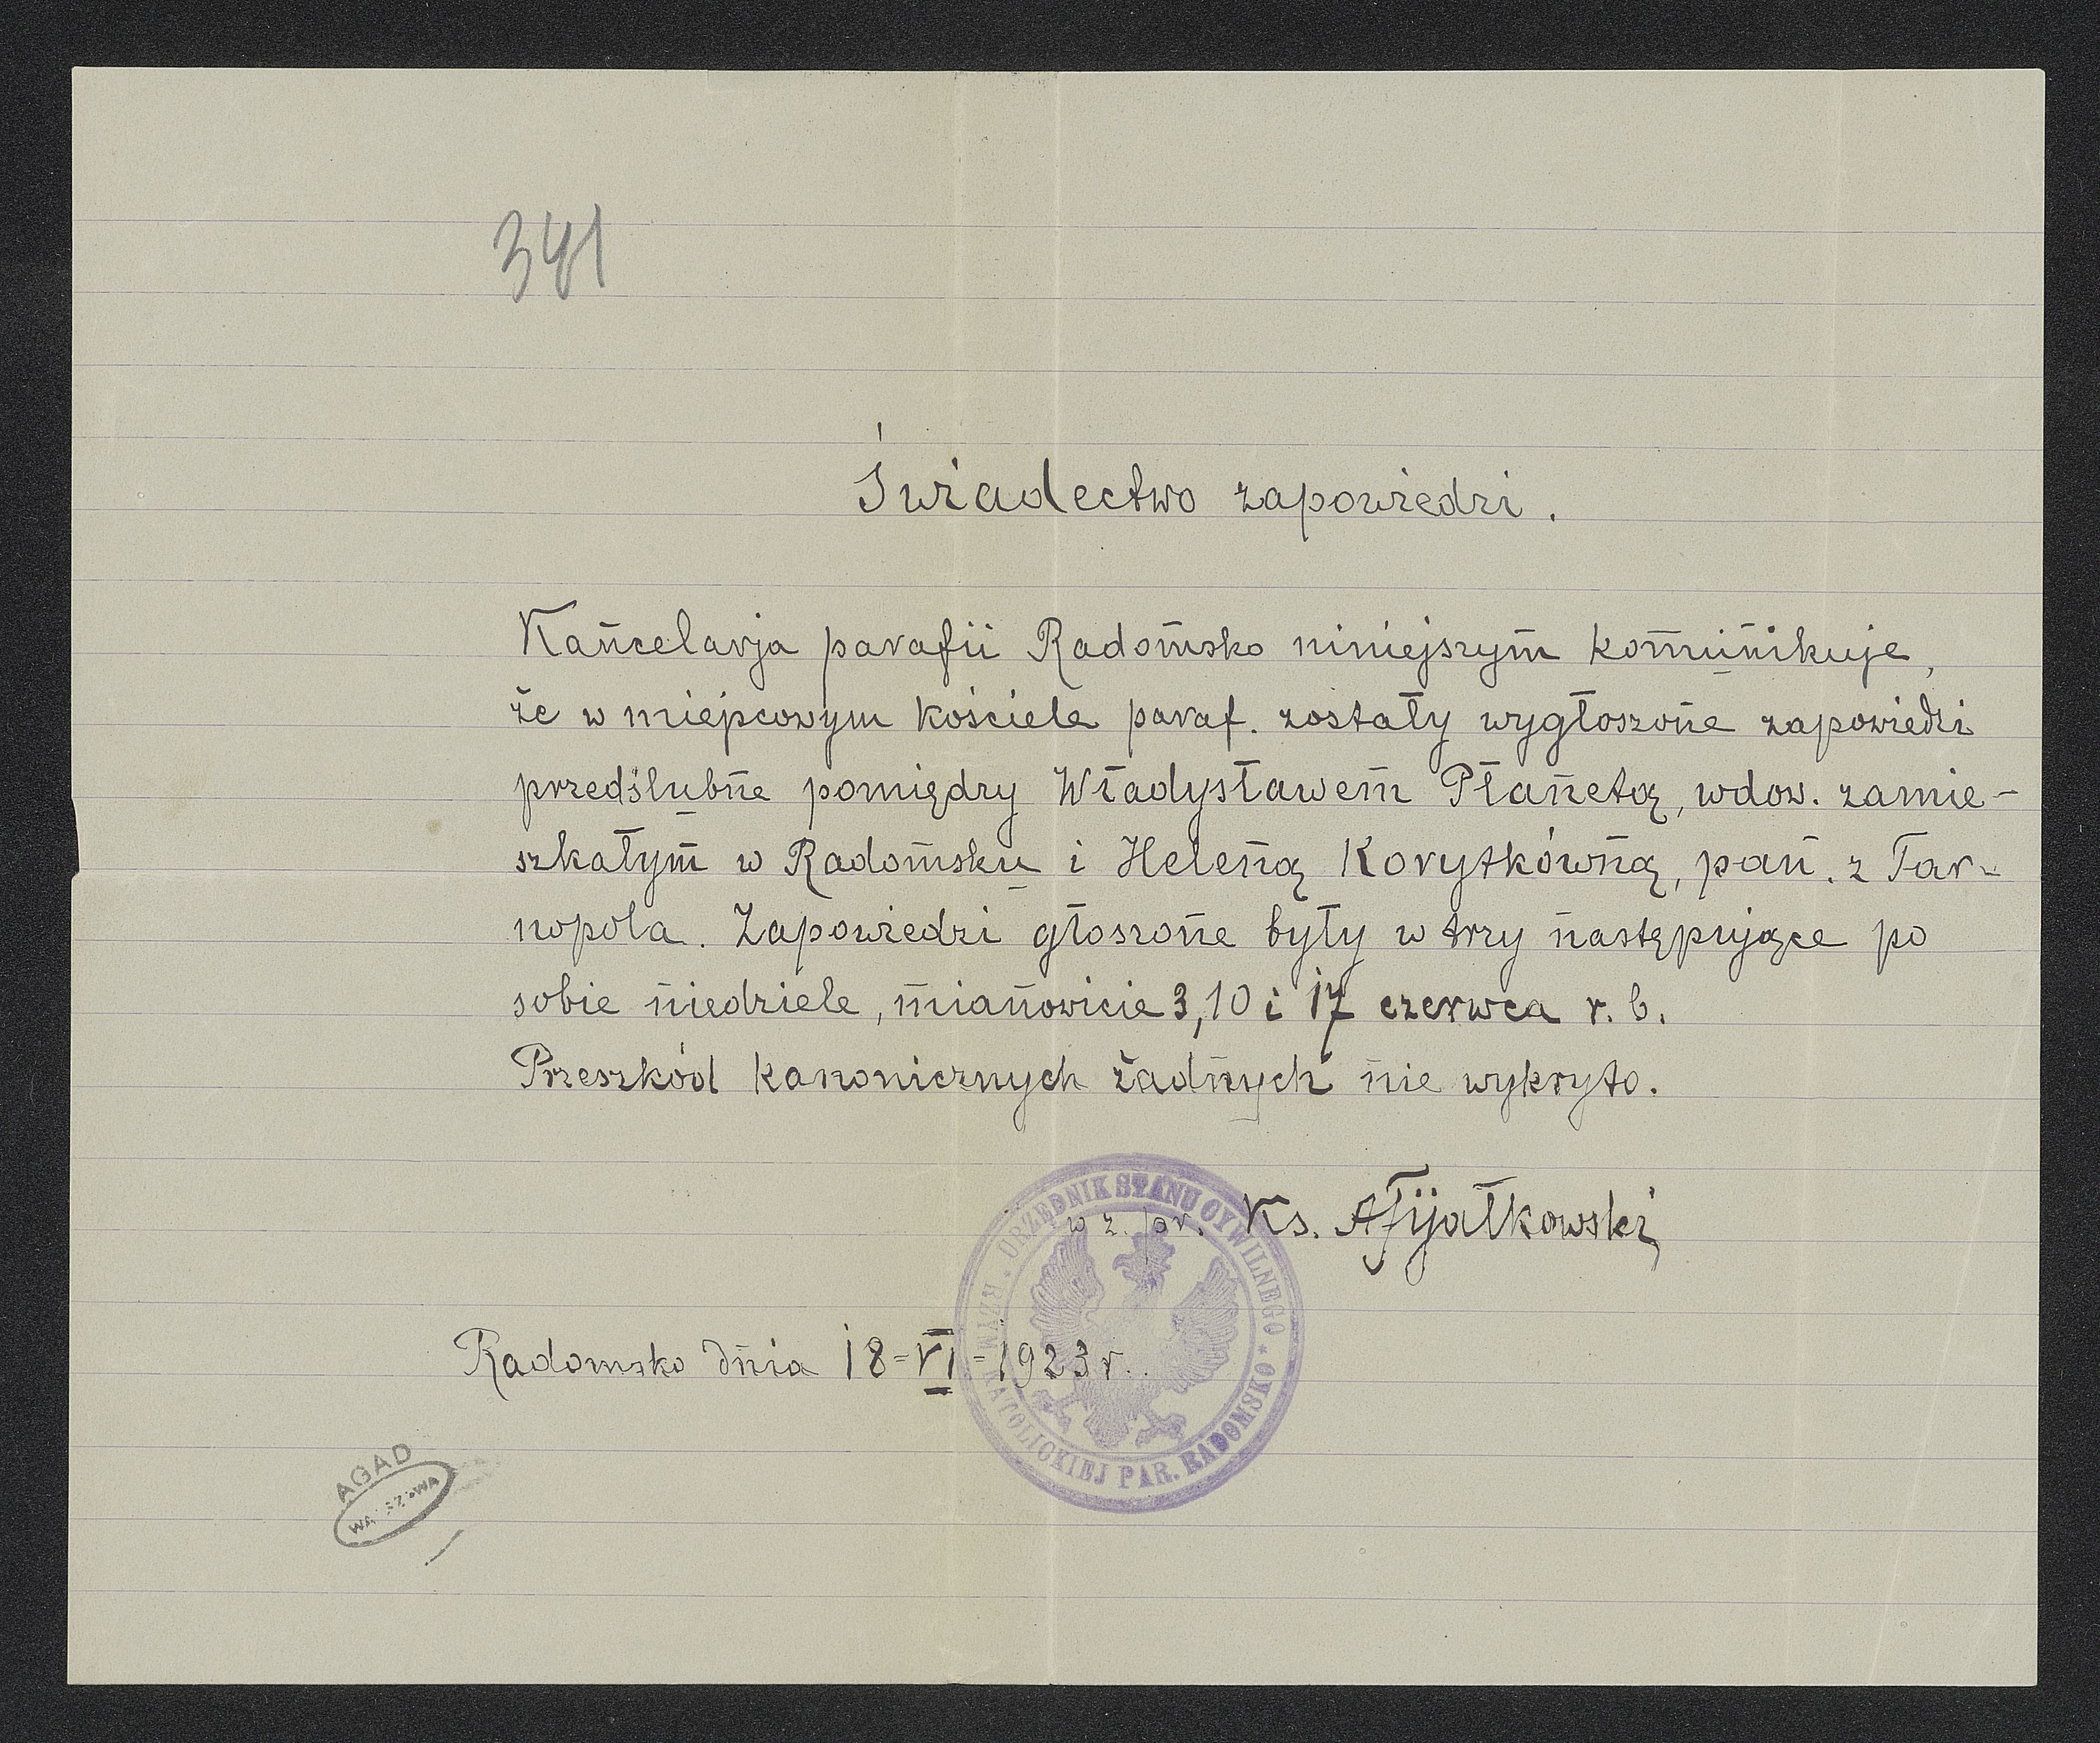 341
Świadectwo zapowiedzi.
Kancelarja parafii Radomsko niniejszym komunikuje,
że w miejscowym kościele paraf. zostały wygłoszone zapowiedzi
przedślubne pomiędzy Władysławem Płanetą, wdow. zamie-
szkałym w Radomsku i Heleną Korytkówną, pan. z Tar-
nopola. Zapowiedzi głoszone były w trzy następujące po
sobie niedziele, mianowicie 3, 10 i 17 czerwca r. b.
Przeszkód kanonicznych żadnych nie wykryto.
w z. pr. Ks. AFijałkowski
URZĘDNIK STANU CYWILNEGO * RZYM. KATOLICKIEJ PAR. RADOMSKO *
Radomsko dnia 18=VI=1923 r.
AGAD
WARSZAWA